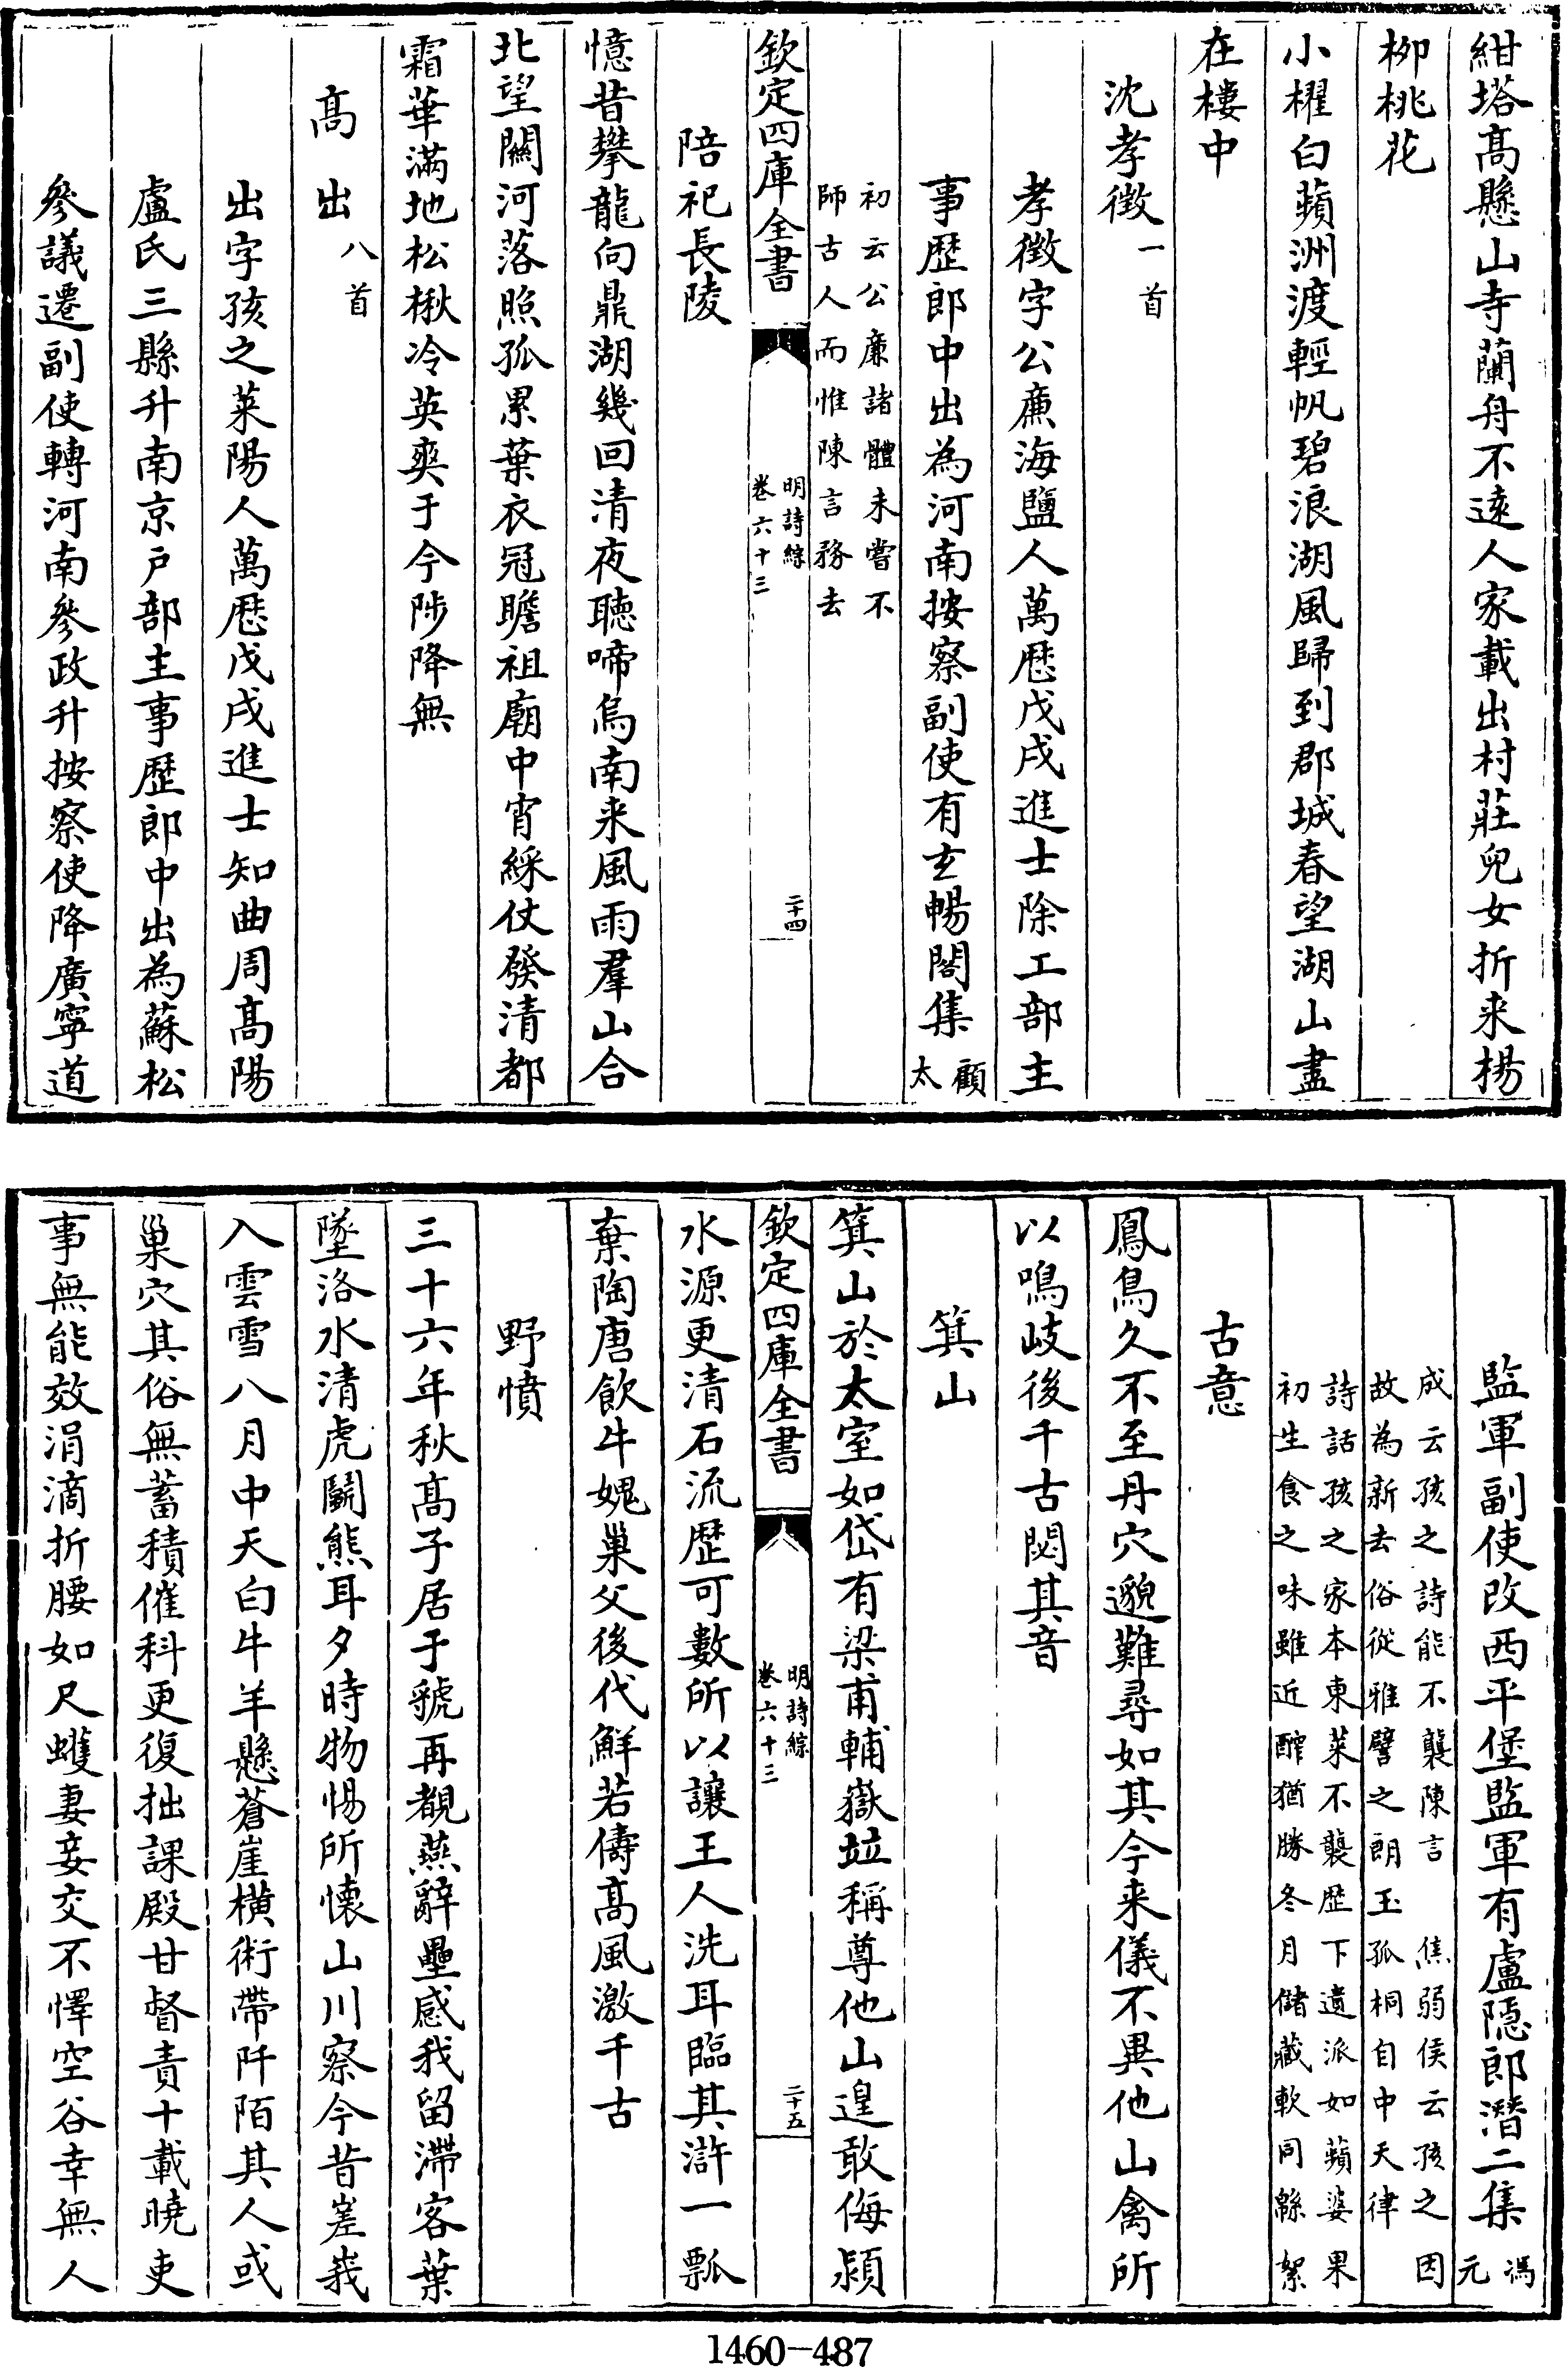 紺塔髙懸山寺蘭舟不逺人家載出村莊兒女折来楊
柳桃花
小櫂白蘋洲渡輕帆碧浪湖風歸到郡城春望湖山盡
在樓中
沈孝徴一首
孝徴字公亷海鹽人萬厯戊戌進士除工部主
事歴郎中出為河南按察副使有玄暢閣集顧太
初云公亷諸體未嘗不
師古人而惟陳言務去
欽定四庫全書
明詩綜
卷六十三
二十四
陪祀長陵
憶昔攀龍向鼎湖幾回清夜聽啼烏南来風雨羣山合
北望關河落照孤累葉衣冠瞻祖廟中宵綵仗發清都
霜華滿地松楸冷英爽于今陟降無
髙出八首
出字孩之萊陽人萬厯戊戌進士知曲周髙陽
盧氏三縣升南京户部主事歴郎中出為蘇松
參議遷副使轉河南參政升按察使降廣寧道
監軍副使改西平堡監軍有盧隱郎潛二集馮元
成云孩之詩能不襲陳言 焦弱侯云孩之因
故為新去俗從雅譬之朗玉孤桐自中天律
詩話孩之家本東萊不襲歴下遺派如蘋婆果
初生食之味雖近酢猶勝冬月儲藏軟同緜絮
古意
鳳鳥久不至丹穴邈難尋如其今来儀不異他山禽所
以鳴岐後千古閟其音
箕山
箕山於太室如岱有梁甫輔嶽竝稱尊他山遑敢侮潁
欽定四庫全書
明詩綜
卷六十三
二十五
水源更清石流歴可數所以讓王人洗耳臨其滸一瓢
棄陶唐飲牛媿巢父後代鮮若儔髙風激千古
野憤
三十六年秋髙子居于虢再覩燕辭壘感我留滯客葉
墜洛水清虎鬭熊耳夕時物惕所懷山川察今昔嵳峩
入雲雪八月中天白牛羊懸蒼崖横術帶阡陌其人或
巢穴其俗無蓄積催科更復拙課殿甘督責十載曉吏
事無能效涓滴折腰如尺蠖妻妾交不懌空谷幸無人
1460-487